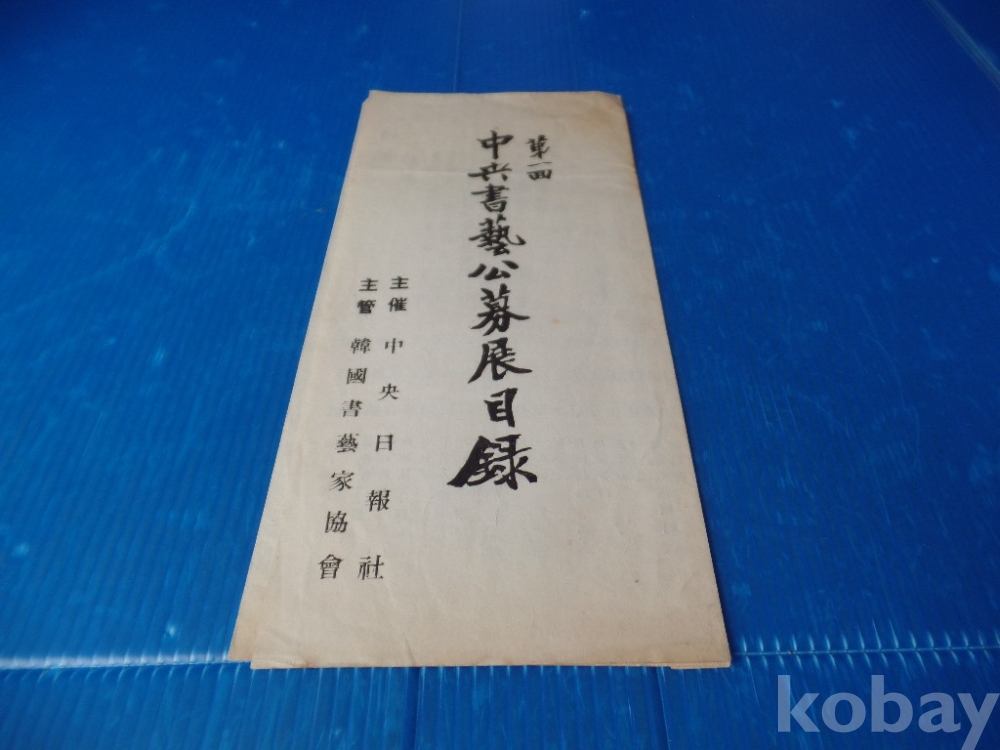 第一回
中央書藝公募展目録
主催 中央日報社
主管 韓國書藝家協會
kobay